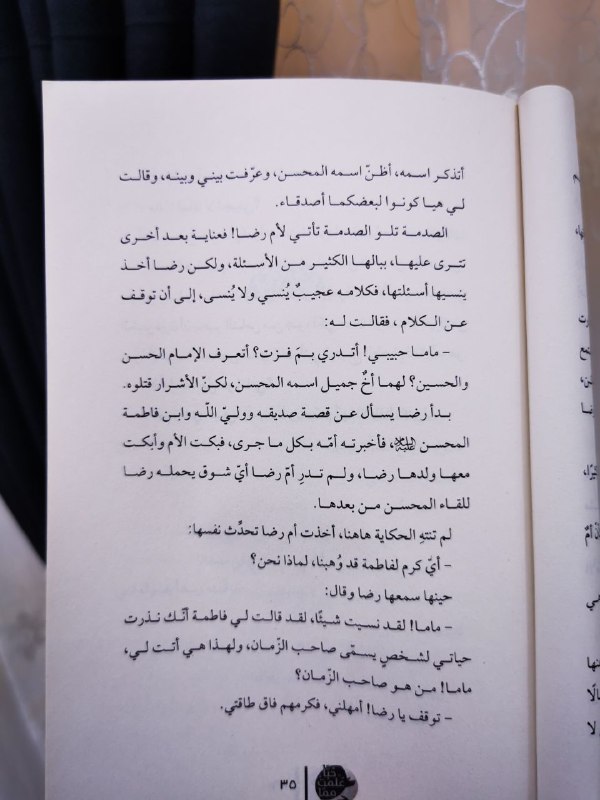 أتذكر اسمه، أظنّ اسمه المحسن، وعرّفت بيني وبينه، وقالت
لي هيا كونوا لبعضكما أصدقاء.
الصدمة تلو الصدمة تأتي لأم رضا! فعناية بعد أخرى
تترى عليها، ببالها الكثير من الأسئلة، ولكن رضا أخذ
ينسيها أسئلتها، فكلامه عجيبٌ يُنسي ولا يُنسى، إلى أن توقف
عن الكلام، فقالت له:
– ماما حبيبي! أتدري بمَ فزت؟ أتعرف الإمام الحسن
والحسين؟ لهما أخٌ جميل اسمه المحسن، لكنّ الأشرار قتلوه.
بدأ رضا يسأل عن قصة صديقه ووليّ اللّه وابن فاطمة
المحسن، فأخبرته أمّه بكل ما جرى، فبكت الأم وأبكت
معها ولدها رضا، ولم تدرِ أمّ رضا أيّ شوق يحمله رضا
للقاء المحسن من بعدها.
لم تنتهِ الحكاية هاهنا، أخذت أم رضا تحدّث نفسها:
– أيّ كرم لفاطمة قد وُهبنا، لماذا نحن؟
حينها سمعها رضا وقال:
– ماما! لقد نسيت شيئًا، لقد قالت لي فاطمة أنّك نذرت
حياتي لشخصٍ يسمّى صاحب الزّمان، ولهذا هي أتت لي،
ماما! من هو صاحب الزّمان؟
– توقف يا رضا! أمهلني، فكرمهم فاق طاقتي.
٣٥